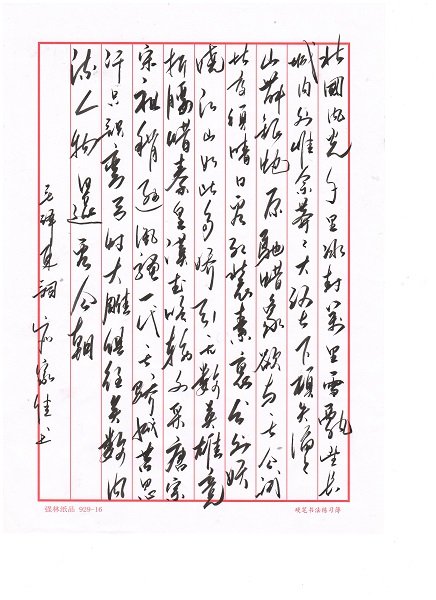 北國风光千里冰封萬里雪飄望长
城内外惟余莽〻大河上下頓失滔〻
山舞銀蛇原馳蜡象欲与天公试
比高須晴日看红装素裹分外妖
娆江山如此多娇引无数英雄竞
折腰惜秦皇漢武略输文采唐宗
宋祖稍逊风骚一代天骄成吉思
汗只识弯弓射大雕俱往矣数风
流人物還看今朝
毛泽东词
强林纸品 929-16
硬笔书法练习簿